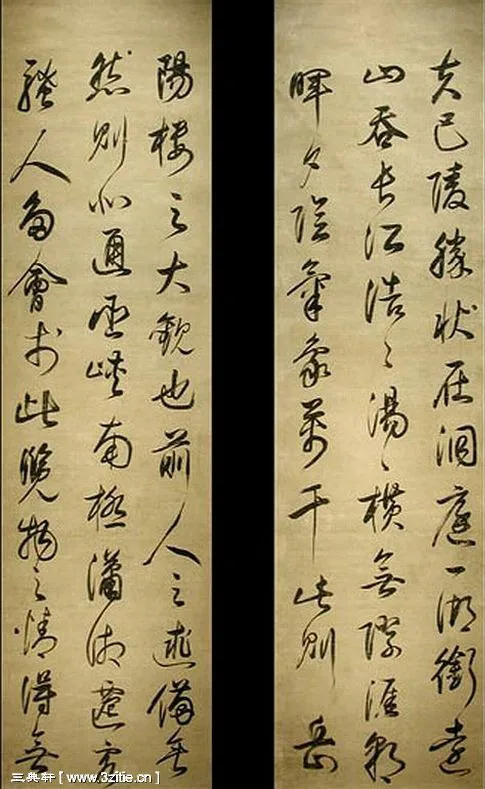 夫巴陵勝狀在洞庭一湖銜遠
山吞長江浩〻湯〻橫無際涯朝
暉夕陰氣象萬千此則岳
陽樓之大觀也前人之述備矣
然則北通巫峽南極瀟湘遷客
騷人多會於此覽物之情得無
三典轩[www.3zitie.cn]